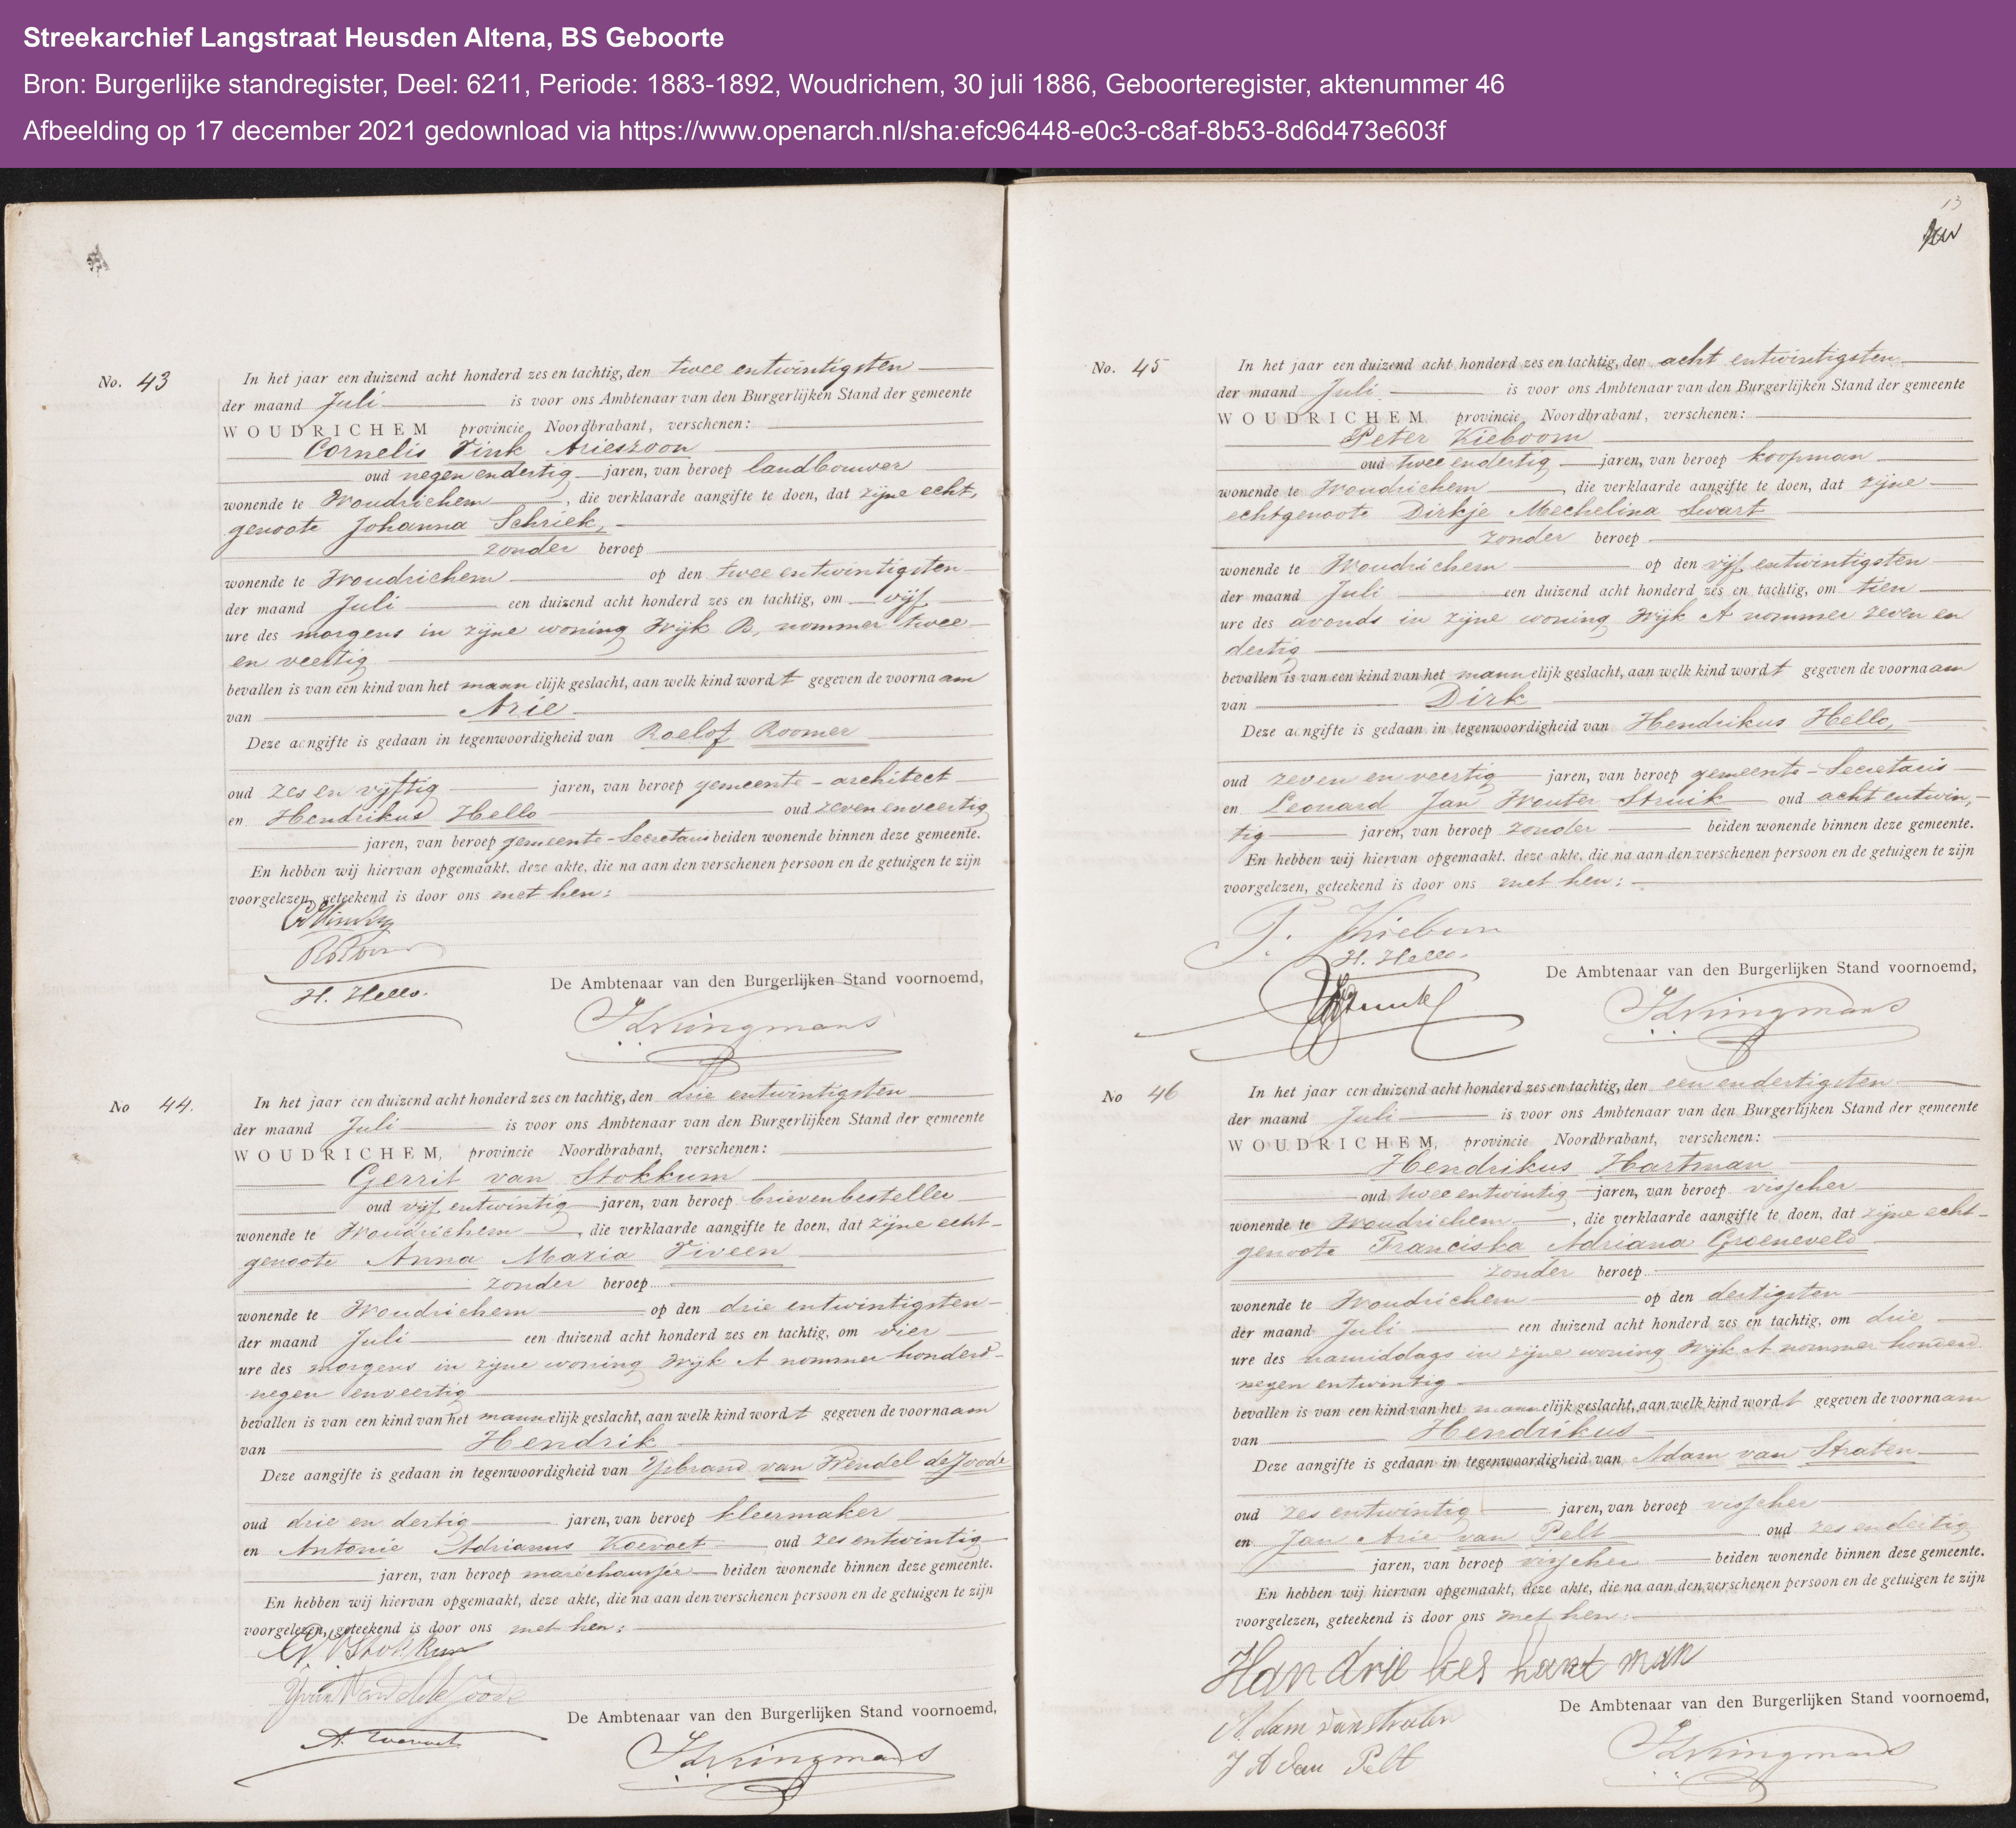 Streekarchief Langstraat Heusden Altena, BS Geboorte
Bron: Burgerlijke standregister, Deel: 6211, Periode: 1883-1892, Woudrichem, 30 juli 1886, Geboorteregister, aktenummer 46
Afbeelding op 17 december 2021 gedownload via https://www.openarch.nl/sha:efc96448-e0c3-c8af-8b53-8d6d473e603f
No. 43 In het jaar een duizend acht honderd zes en tachtig, den twee entwintigsten
der maand Juli is voor ons Ambtenaar van den Burgerlijken Stand der gemeente
WOUDRICHEM provincie Noordbrabant, verschenen:
Cornelis Vink Arieszoon
oud negen endertig jaren, van beroep landbouwer
wonende te Woudrichem, die verklaarde aangifte te doen, dat zijne echt,
genoote Johanna Schriek,
zonder beroep
wonende te Woudrichem op den twee entwintigsten
der maand Juli een duizend acht honderd zes en tachtig, om vijf
ure des morgens in zijne woning Wijk B, nommer twee
en veertig
bevallen is van een kind van het mannelijk geslacht, aan welk kind wordt gegeven de voornaam
van Arie
Deze aangifte is gedaan in tegenwoordigheid van Roelof Roomer
oud zes en vijftig jaren, van beroep gemeente-architect
en Hendrikus Hello oud zeven enveertig
jaren, van beroep gemeente-Secretaris beiden wonende binnen deze gemeente.
En hebben wij hiervan opgemaakt, deze akte, die na aan den verschenen persoon en de getuigen te zijn
voorgelezen, geteekend is door ons met hen:
H. Hello.
De Ambtenaar van den Burgerlijken Stand voornoemd,
No 44. In het jaar een duizend acht honderd zes en tachtig, den drie entwintigsten
der maand Juli is voor ons Ambtenaar van den Burgerlijken Stand der gemeente
WOUDRICHEM, provincie Noordbrabant, verschenen:
Gerrit van Stokkum
oud vijf entwintig jaren, van beroep brievenbesteller
wonende te Woudrichem, die verklaarde aangifte te doen, dat zijne echt-
genoote Anna Maria Viveen
zonder beroep
wonende te Woudrichem op den drie entwintigsten
der maand Juli een duizend acht honderd zes en tachtig, om vier
ure des morgens in zijne woning Wijk A nommer honderd-
negen enveertig
bevallen is van een kind van het mannelijk geslacht, aan welk kind wordt gegeven de voornaam
van Hendrik
Deze aangifte is gedaan in tegenwoordigheid van IJsbrand van Wendel de Joode
oud drie en dertig jaren, van beroep kleermaker
en Antonie Adrianus Koevoet, oud zes entwintig
jaren, van beroep maréchaussée beiden wonende binnen deze gemeente.
En hebben wij hiervan opgemaakt, deze akte, die na aan den verschenen persoon en de getuigen te zijn
voorgelezen, geteekend is door ons met hen:
De Ambtenaar van den Burgerlijken Stand voornoemd,
13
No. 45 In het jaar een duizend acht honderd zes en tachtig, den acht entwintigsten
der maand Juli is voor ons Ambtenaar van den Burgerlijken Stand der gemeente
WOUDRICHEM provincie Noordbrabant, verschenen:
Peter Kieboom
oud twee endertig jaren, van beroep koopman
wonende te Woudrichem, die verklaarde aangifte te doen, dat zijne
echtgenoote Dirkje Mechelina Swart
zonder beroep
wonende te Woudrichem op den vijf entwintigsten
der maand Juli een duizend acht honderd zes en tachtig, om tien
ure des avonds in zijne woning Wijk A nommer zeven en
dertig
bevallen is van een kind van het mannelijk geslacht, aan welk kind wordt gegeven de voornaam
van Dirk
Deze aangifte is gedaan in tegenwoordigheid van Hendrikus Hello,
oud zeven en veertig jaren, van beroep gemeente-Secretaris
en Leonard Jan Wouter Struik oud acht entwin,
tig jaren, van beroep zonder beiden wonende binnen deze gemeente.
En hebben wij hiervan opgemaakt, deze akte, die na aan den verschenen persoon en de getuigen te zijn
voorgelezen, geteekend is door ons met hen:
P. Kiebom
H. Hello.
De Ambtenaar van den Burgerlijken Stand voornoemd,
No 46 In het jaar een duizend acht honderd zes en tachtig, den een endertigsten
der maand Juli is voor ons Ambtenaar van den Burgerlijken Stand der gemeente
WOUDRICHEM, provincie Noordbrabant, verschenen:
Hendrikus Hartman
oud twee entwintig jaren, van beroep visscher
wonende te Woudrichem, die verklaarde aangifte te doen, dat zijne echt-
genoote Franciska Adriana Groeneveld
zonder beroep
wonende te Woudrichem op den dertigsten
der maand Juli een duizend acht honderd zes en tachtig, om drie
ure des namiddags in zijne woning Wijk A nommer honderd
negen entwintig
bevallen is van een kind van het mannelijk geslacht, aan welk kind wordt gegeven de voornaam
van Hendrikus
Deze aangifte is gedaan in tegenwoordigheid van Adam van Straten
oud zes entwintig jaren, van beroep visscher
en Jan Arie van Pelt oud zes endertig
jaren, van beroep visscher beiden wonende binnen deze gemeente.
En hebben wij hiervan opgemaakt, deze akte, die na aan den verschenen persoon en de getuigen te zijn
voorgelezen, geteekend is door ons met hen:
Handrie kes hart man
Adam van straten
J A van Pelt
De Ambtenaar van den Burgerlijken Stand voornoemd,